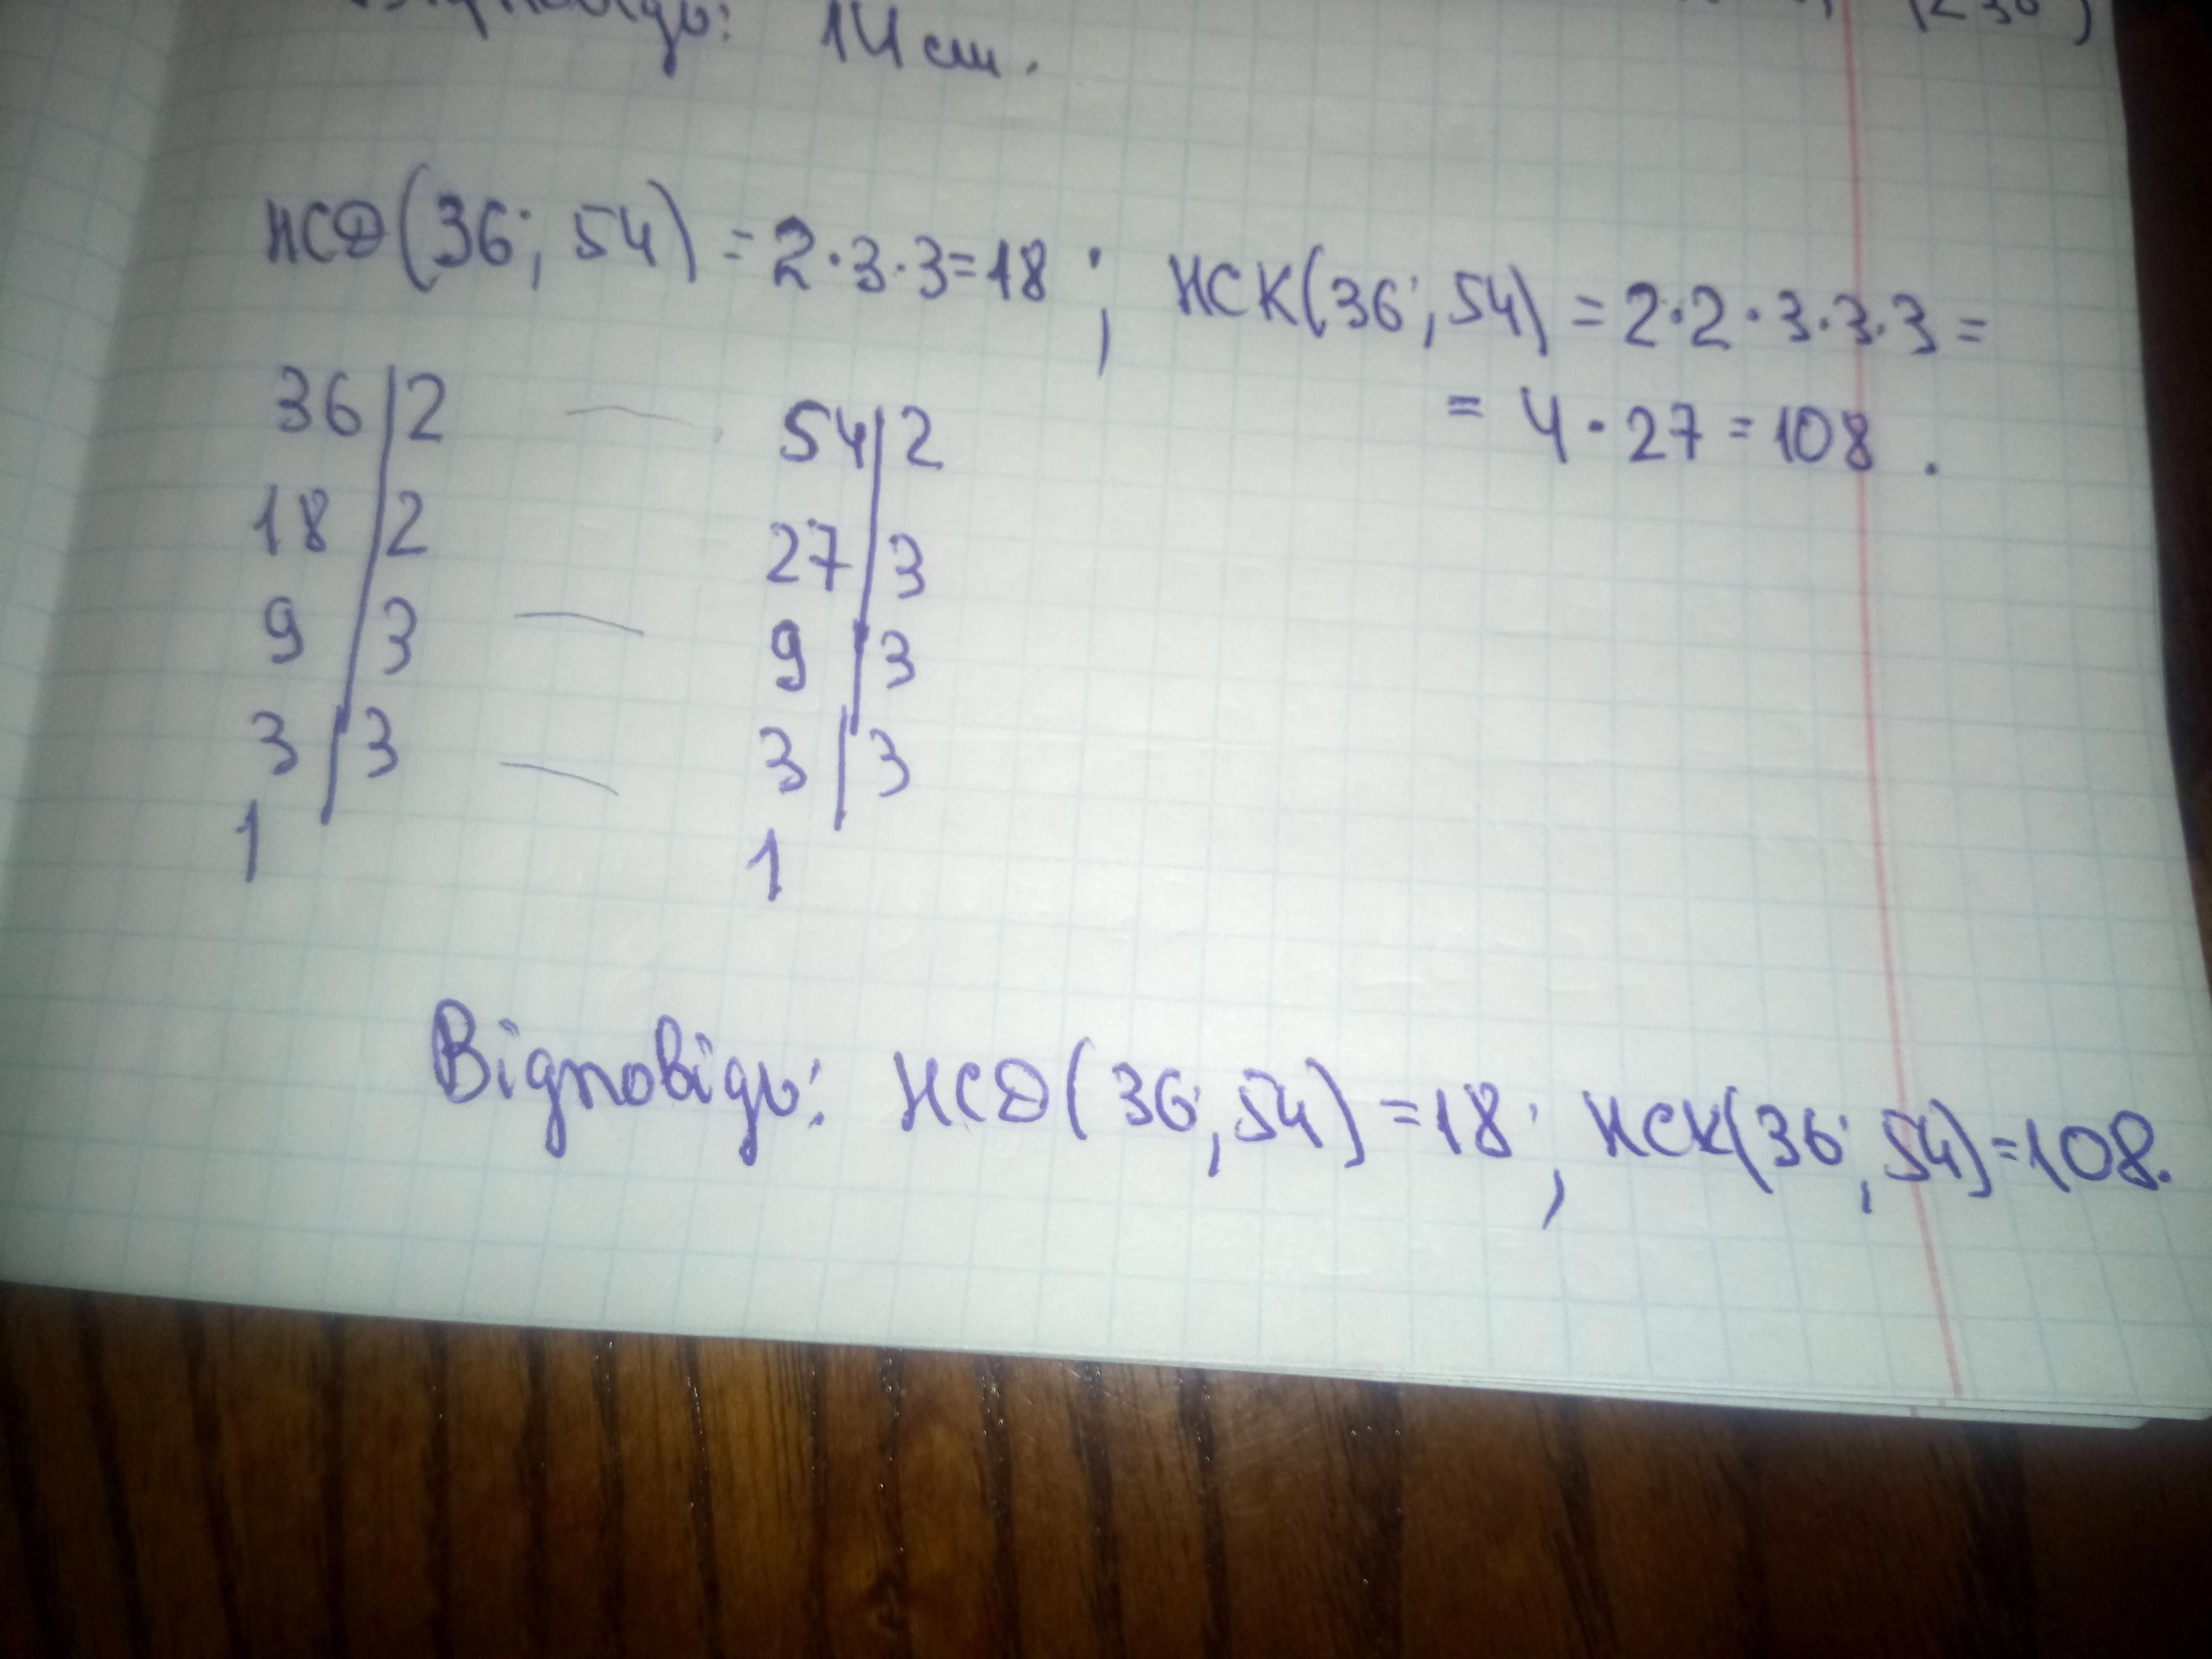 14 см.
НСД(36; 54) = 2·3·3=18; НСК(36; 54) = 2·2·3·3·3=
= 4·27=108.
36|2 54|2
18|2 27|3
9|3 9|3
3|3 3|3
1 1
Відповідь: НСД(36; 54)=18; НСК(36; 54)=108.